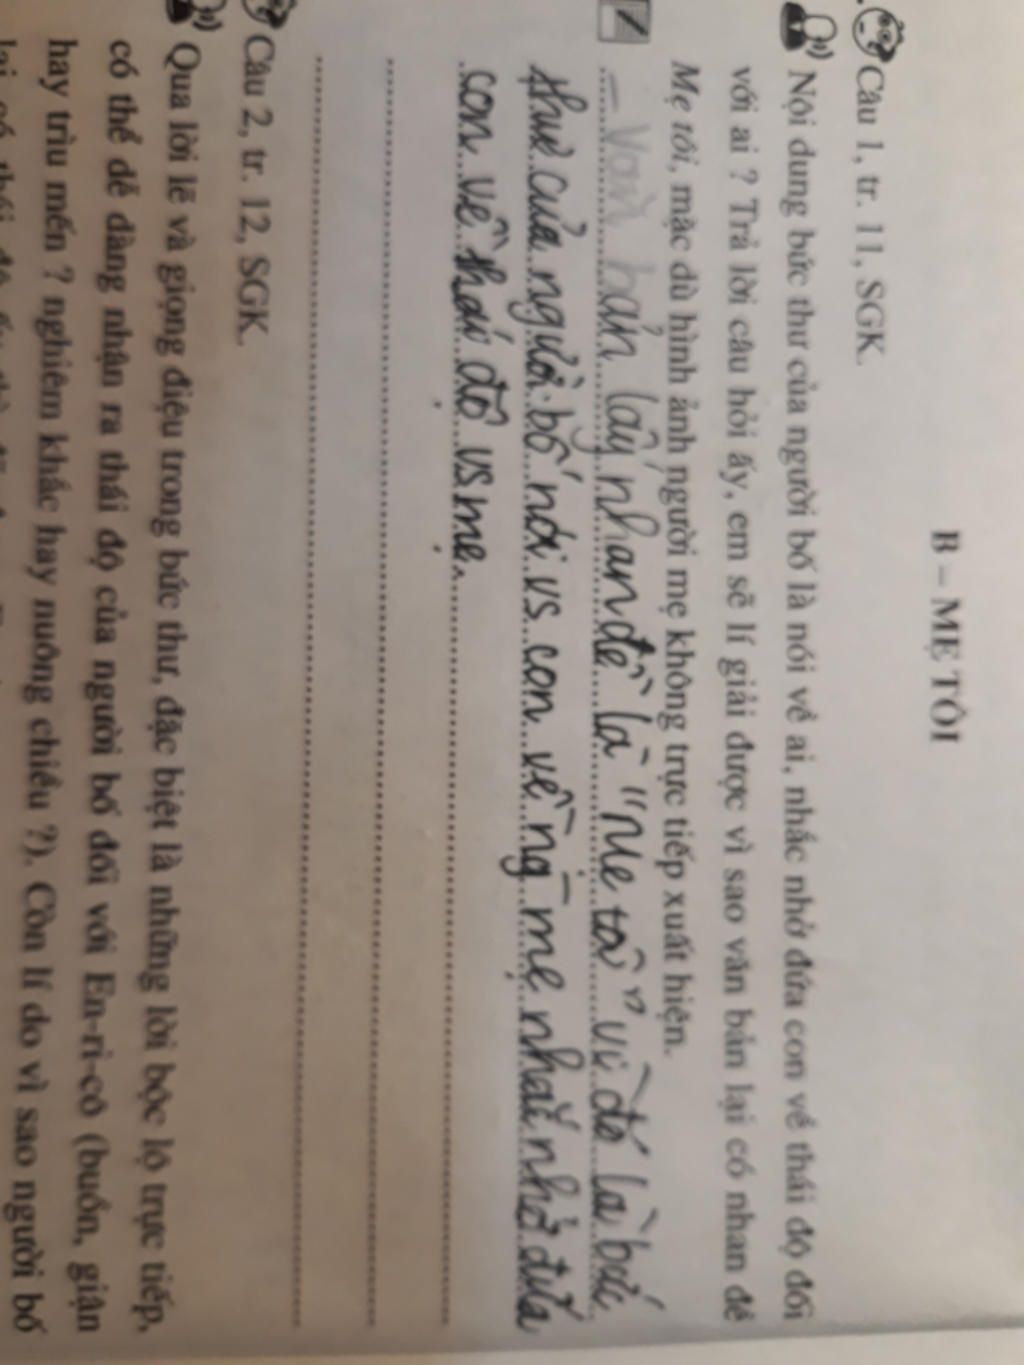 B – MẸ TÔI
Câu 1, tr. 11, SGK.
Nội dung bức thư của người bố là nói về ai, nhắc nhở đứa con về thái độ đối
với ai ? Trả lời câu hỏi ấy, em sẽ lí giải được vì sao văn bản lại có nhan đề
Mẹ tôi, mặc dù hình ảnh người mẹ không trực tiếp xuất hiện.
– Văn bản lấy nhan đề là "Mẹ tôi" vì đó là bức
thư của người bố nói vs con về ng mẹ nhắc nhở đứa
con về thái độ vs mẹ.
Câu 2, tr. 12, SGK.
Qua lời lẽ và giọng điệu trong bức thư, đặc biệt là những lời bộc lộ trực tiếp,
có thể dễ dàng nhận ra thái độ của người bố đối với En-ri-cô (buồn, giận
hay trìu mến ? nghiêm khắc hay nuông chiều ?). Còn lí do vì sao người bố
lại có thái độ